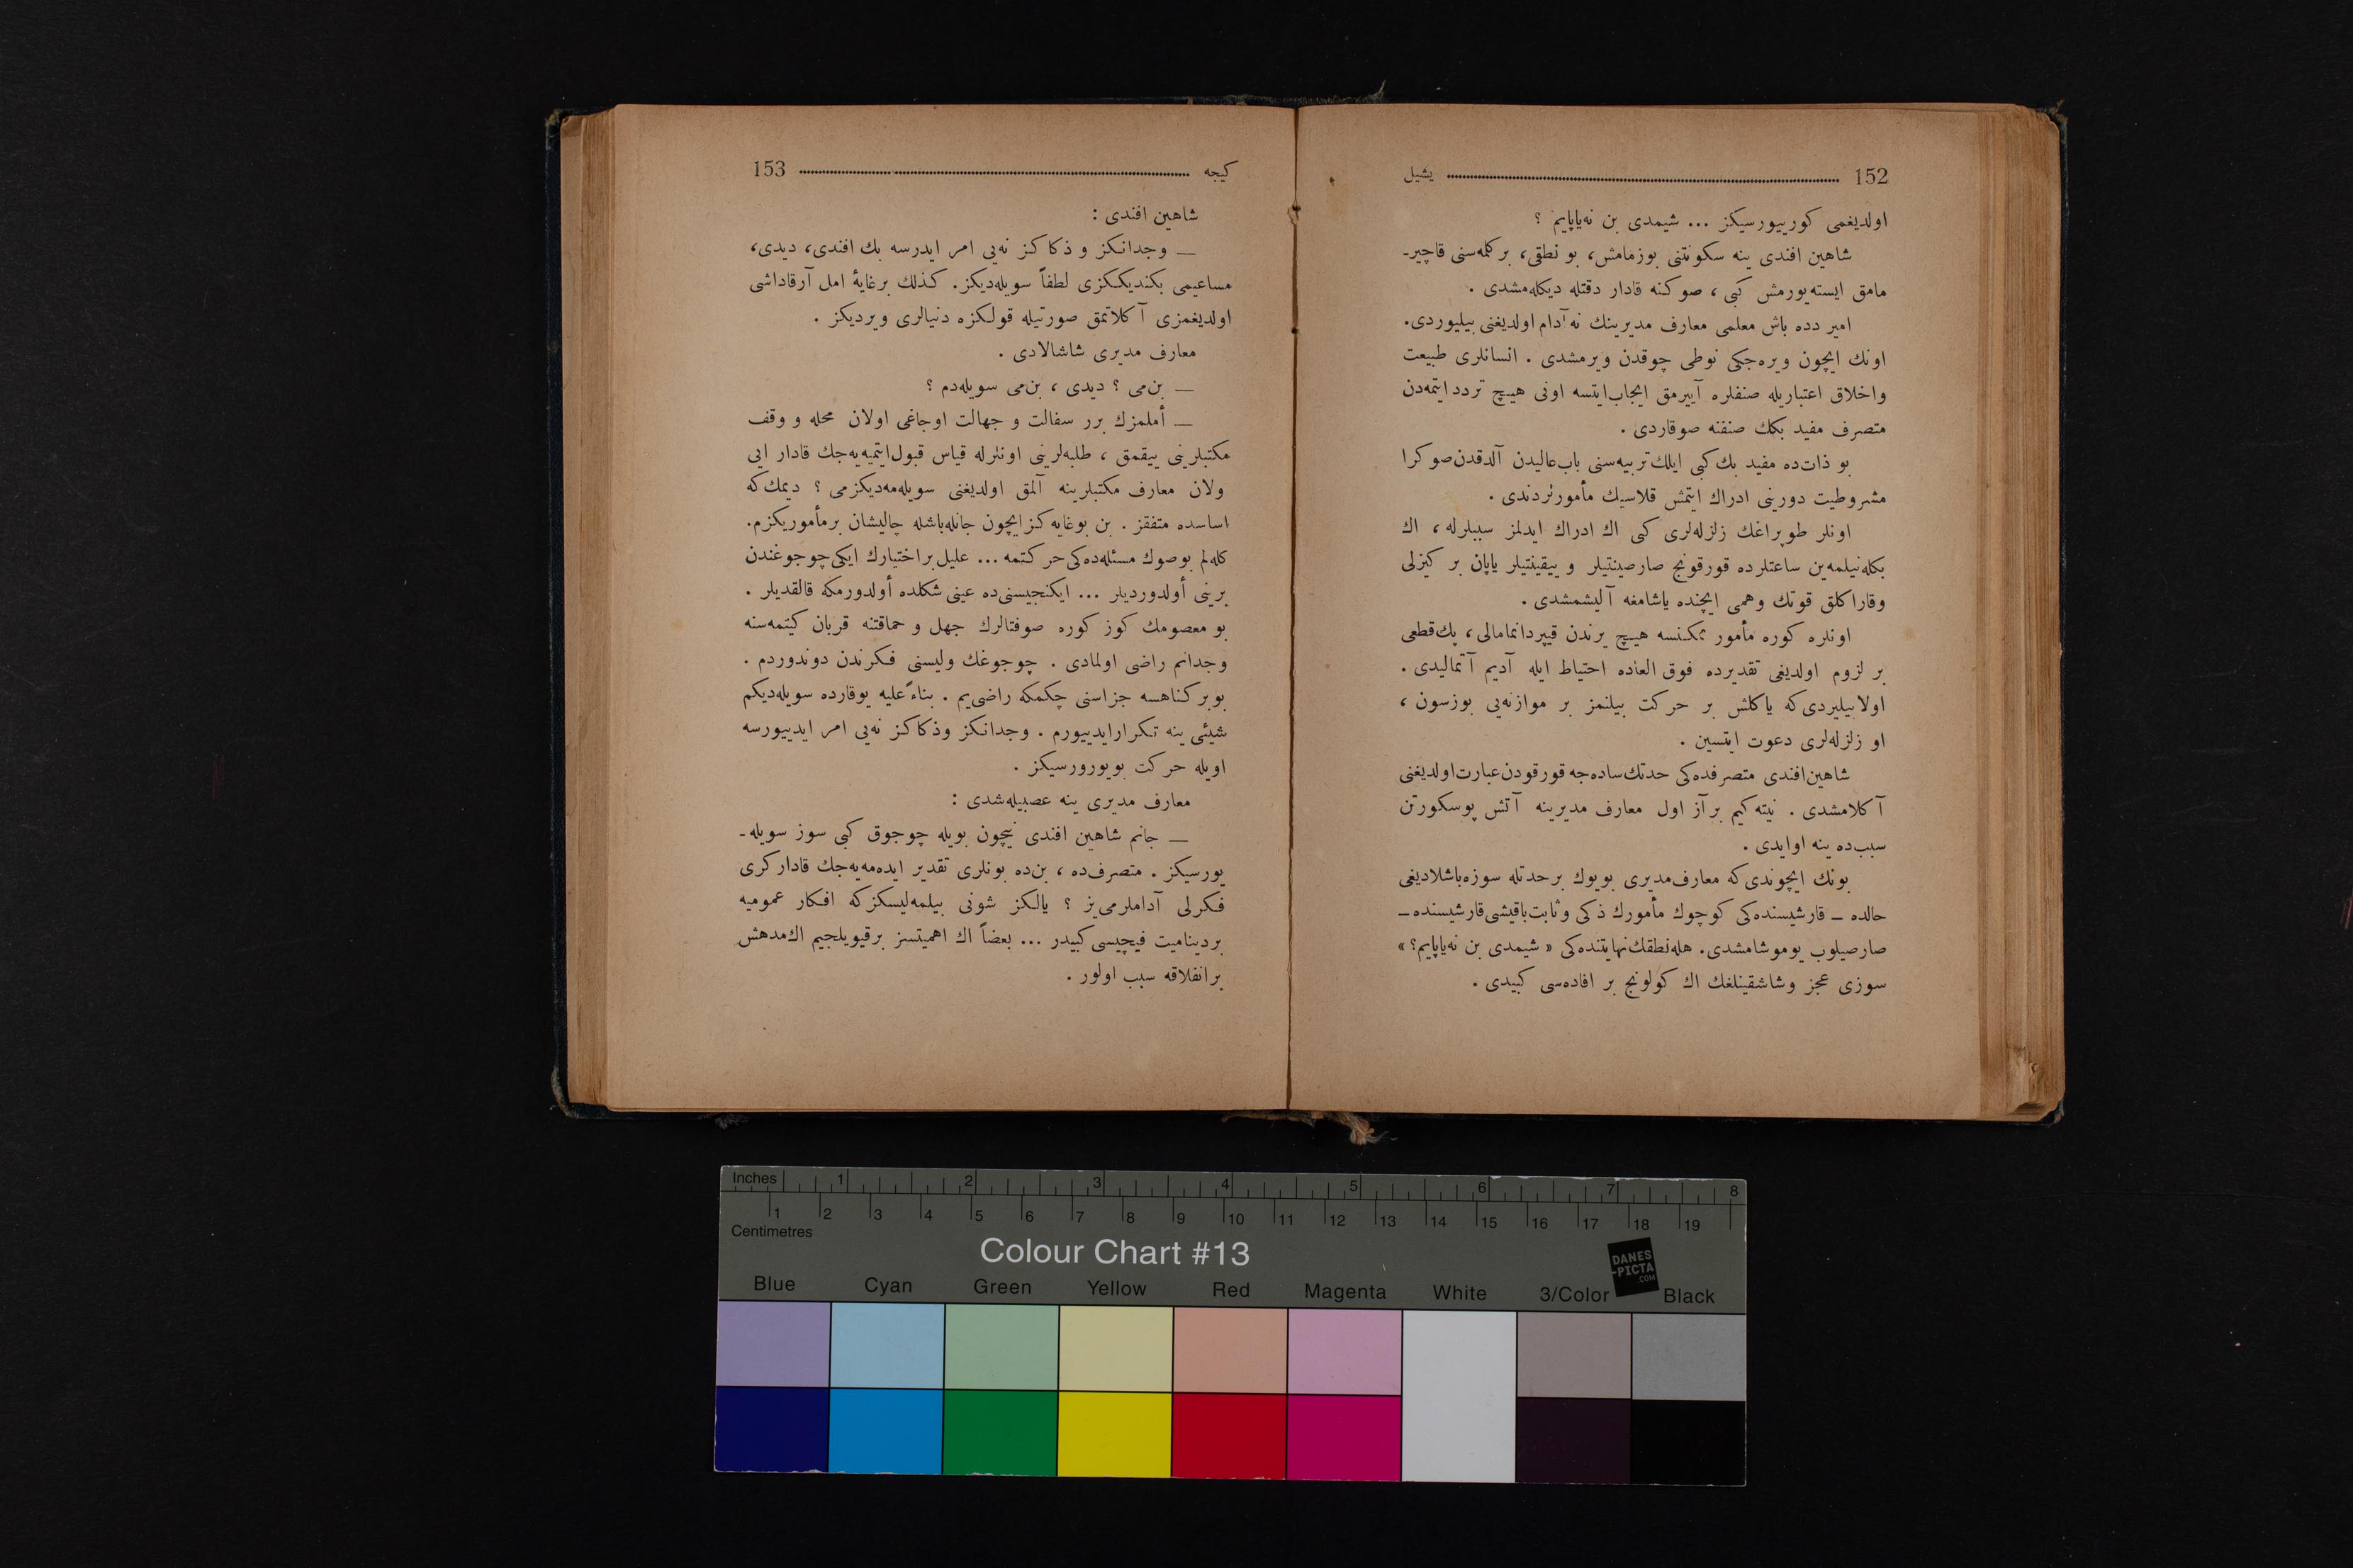 152 یشیل
اولدیغمی كورییورسیكز ... شیمدی بن نه‌یاپایم ؟
شاهین افندی ینه سكوتنی بوزمامش، بو نطقی، بر كلمه‌سنی قاچیر-
مامق ایسته‌یورمش كبی ، صوكنه قادار دقتله دیكله‌مشدی .
امیر دده باش معلمی معارف مدیرینك نه آدام اولدیغنی بیلیوردی.
اونك ایچون ویره‌جكی نوطی چوقدن ویرمشدی . انسانلری طبیعت
واخلاق اعتباریله صنفلره آییرمق ایجاب‌ایتسه اونی هیچ تردد ایتمه‌دن
متصرف مفید بكك صنفنه صوقاردی .
بو ذات‌ده مفید بك كبی ایلك تربیه‌سنی باب‌عالیدن آلدقدن صوكرا
مشروطیت دورینی ادراك ایتمش قلاسیك مأمورلردندی .
اونلر طوپراغك زلزله‌لری كبی اك ادراك ایدلمز سببلرله ، اك
بكله‌نیلمه‌ین ساعتلرده قورقونج صارصینتیلر و ییقینتیلر یاپان بر كیزلی
وقاراكلق قوتك وهمی ایچنده یاشامغه آلیشمشدی .
اونلره كوره مأمور ممكنسه هیچ یرندن قیپردانمامالی ، پك‌قطعی
بر لزوم اولدیغی تقدیرده فوق العاده احتیاط ایله آدیم آتمالیدی .
اولابیلیردی‌كه یاكلش بر حركت بیلنمز بر موازنه‌یی بوزسون ،
او زلزله‌لری دعوت ایتسین .
شاهین‌افندی متصرفده‌كی حدتك ساده‌جه قورقودن عبارت اولدیغنی
آكلامشدی . نیته‌كیم بر آز اول معارف مدیرینه آتش پوسكورتن
سبب‌ده ینه اوایدی .
بونك ایچوندی‌كه معارف‌مدیری بویوك بر حدتله سوزه باشلادیغی
حالده ــ قارشیسنده‌كی كوچوك مأمورك ذكی وثابت باقیشی قارشیسنده ــ
صارصیلوب یوموشامشدی. هله‌نطقك‌نهایتنده‌كی « شیمدی بن نه‌یاپایم؟ »
سوزی عجز وشاشقینلغك اك كولونج بر افاده‌سی كبیدی .
كیجه 153
شاهین افندی :
ــ وجدانكز و ذكاكز نه‌یی امر ایدرسه بك افندی، دیدی،
مساعیمی بكندیككزی لطفاً سویله‌دیكز. كذلك بر غایۀ امل آرقاداشی
اولدیغمزی آكلاتمق صورتیله قولكزه دنیالری ویردیكز .
معارف مدیری شاشالادی .
ــ بن‌می ؟ دیدی ، بن‌می سویله‌دم ؟
ــ أملمزك برر سفالت و جهالت اوجاغی اولان محله و وقف
مكتبلرینی ییقمق ، طلبه‌لرینی اونلرله قیاس قبول‌ایتمیه‌یه‌جك قادار ایی
ولان معارف مكتبلرینه آلمق اولدیغنی سویله‌مه‌دیكزمی ؟ دیمك‌كه
اساسده متفقز . بن بوغایه كزایچون جانله‌باشله چالیشان برمأموریكزم.
كله‌لم بوصوك مسئله‌ده‌كی حركتمه ... علیل بر اختیارك ایكی چوجوغندن
برینی أولدوردیلر ... ایكنجیسنی‌ده عینی شكلده أولدورمكه قالقدیلر .
بو معصومك كوز كوره صوفتالرك جهل و حماقتنه قربان كیتمه‌سنه
وجدانم راضی اولمادی . چوجوغك ولیسنی فكرندن دوندوردم .
بوبر كناهسه جزاسنی چكمكه راضی‌یم . بناءً علیه یوقارده سویله‌دیكم
شیئی ینه تكرارایدییورم . وجدانكز وذكاكز نه‌یی امر ایدییورسه
اویله حركت بویورورسیكز .
معارف مدیری ینه عصبیله‌شدی :
ــ جانم شاهین افندی نیچون بویله چوجوق كبی سوز سویله-
یورسیكز . متصرف‌ده ، بن‌ده بونلری تقدیر ایده‌مه‌یه‌جك قادار كری
فكرلی آداملرمی‌یز ؟ یالكز شونی بیلمه‌لیسكزكه افكار عمومیه
بردینامیت فیچیسی كبیدر ... بعضاً اك اهمیتسز برقیویلجیم اك‌مدهش
برانفلاقه سبب اولور .
Inches 1 2 3 4 5 6 7 8
1 2 3 4 5 6 7 8 9 10 11 12 13 14 15 16 17 18 19
Centimetres
Colour Chart #13
DANES
-PICTA
.COM
Blue Cyan Green Yellow Red Magenta White 3/Color Black